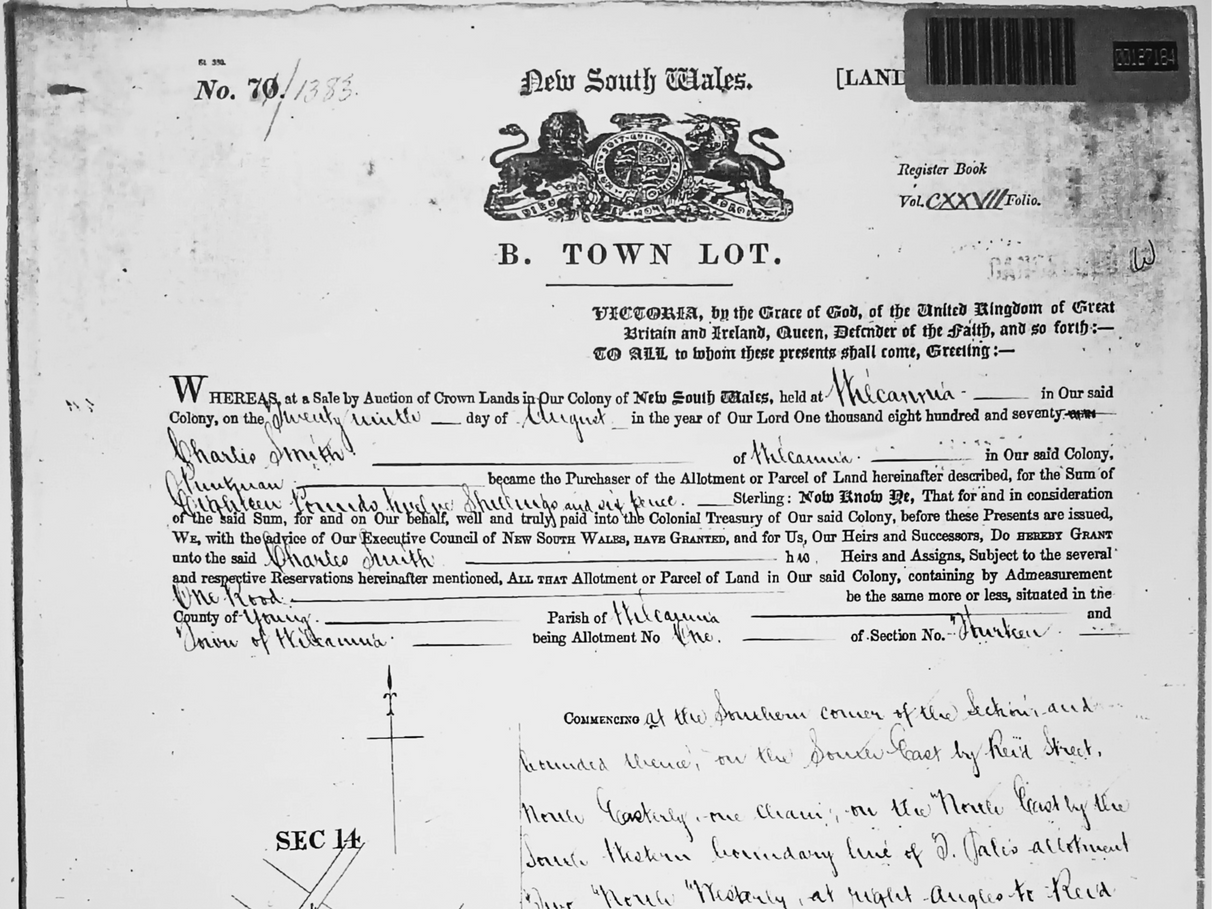 No. 70/1383.
New South Wales.
[LAND
00127184
Register Book
Vol. CXXVII Folio.
DIEU ET MON DROIT
B. TOWN LOT.
CANCELLED W
VICTORIA, by the Grace of God, of the United Kingdom of Great
Britain and Ireland, Queen, Defender of the Faith, and so forth:—
TO ALL to whom these presents shall come, Greeting:—
WHEREAS, at a Sale by Auction of Crown Lands in Our Colony of New South Wales, held at Wilcannia in Our said
Colony, on the Twenty ninth day of August in the year of Our Lord One thousand eight hundred and seventy
Charles Smith of Wilcannia in Our said Colony,
became the Purchaser of the Allotment or Parcel of Land hereinafter described, for the Sum of
Eighteen Pounds twelve Shillings and six pence. Sterling: Now Know Ye, That for and in consideration
of the said Sum, for and on Our behalf, well and truly paid into the Colonial Treasury of Our said Colony, before these Presents are issued,
WE, with the advice of Our Executive Council of NEW SOUTH WALES, HAVE GRANTED, and for Us, Our Heirs and Successors, DO HEREBY GRANT
unto the said Charles Smith his Heirs and Assigns, Subject to the several
and respective Reservations hereinafter mentioned, ALL THAT Allotment or Parcel of Land in Our said Colony, containing by Admeasurement
One Rood be the same more or less, situated in the
County of Young Parish of Wilcannia and
Town of Wilcannia being Allotment No One. of Section No. Thirteen
COMMENCING at the Southern corner of the Section; and
bounded thence, on the South East by Reid Street,
North Easterly one chain; on the North East by the
South Western boundary line of J. Pale's allotment
Two North Westerly, at right angles to Reid
SEC 14